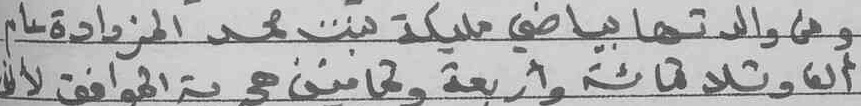 ومن والدتها بياضي مليكة بنت محمد المزدادة عام
ألف وثلاثمائة وأربعة وثمانين هجرية الموافق لألف